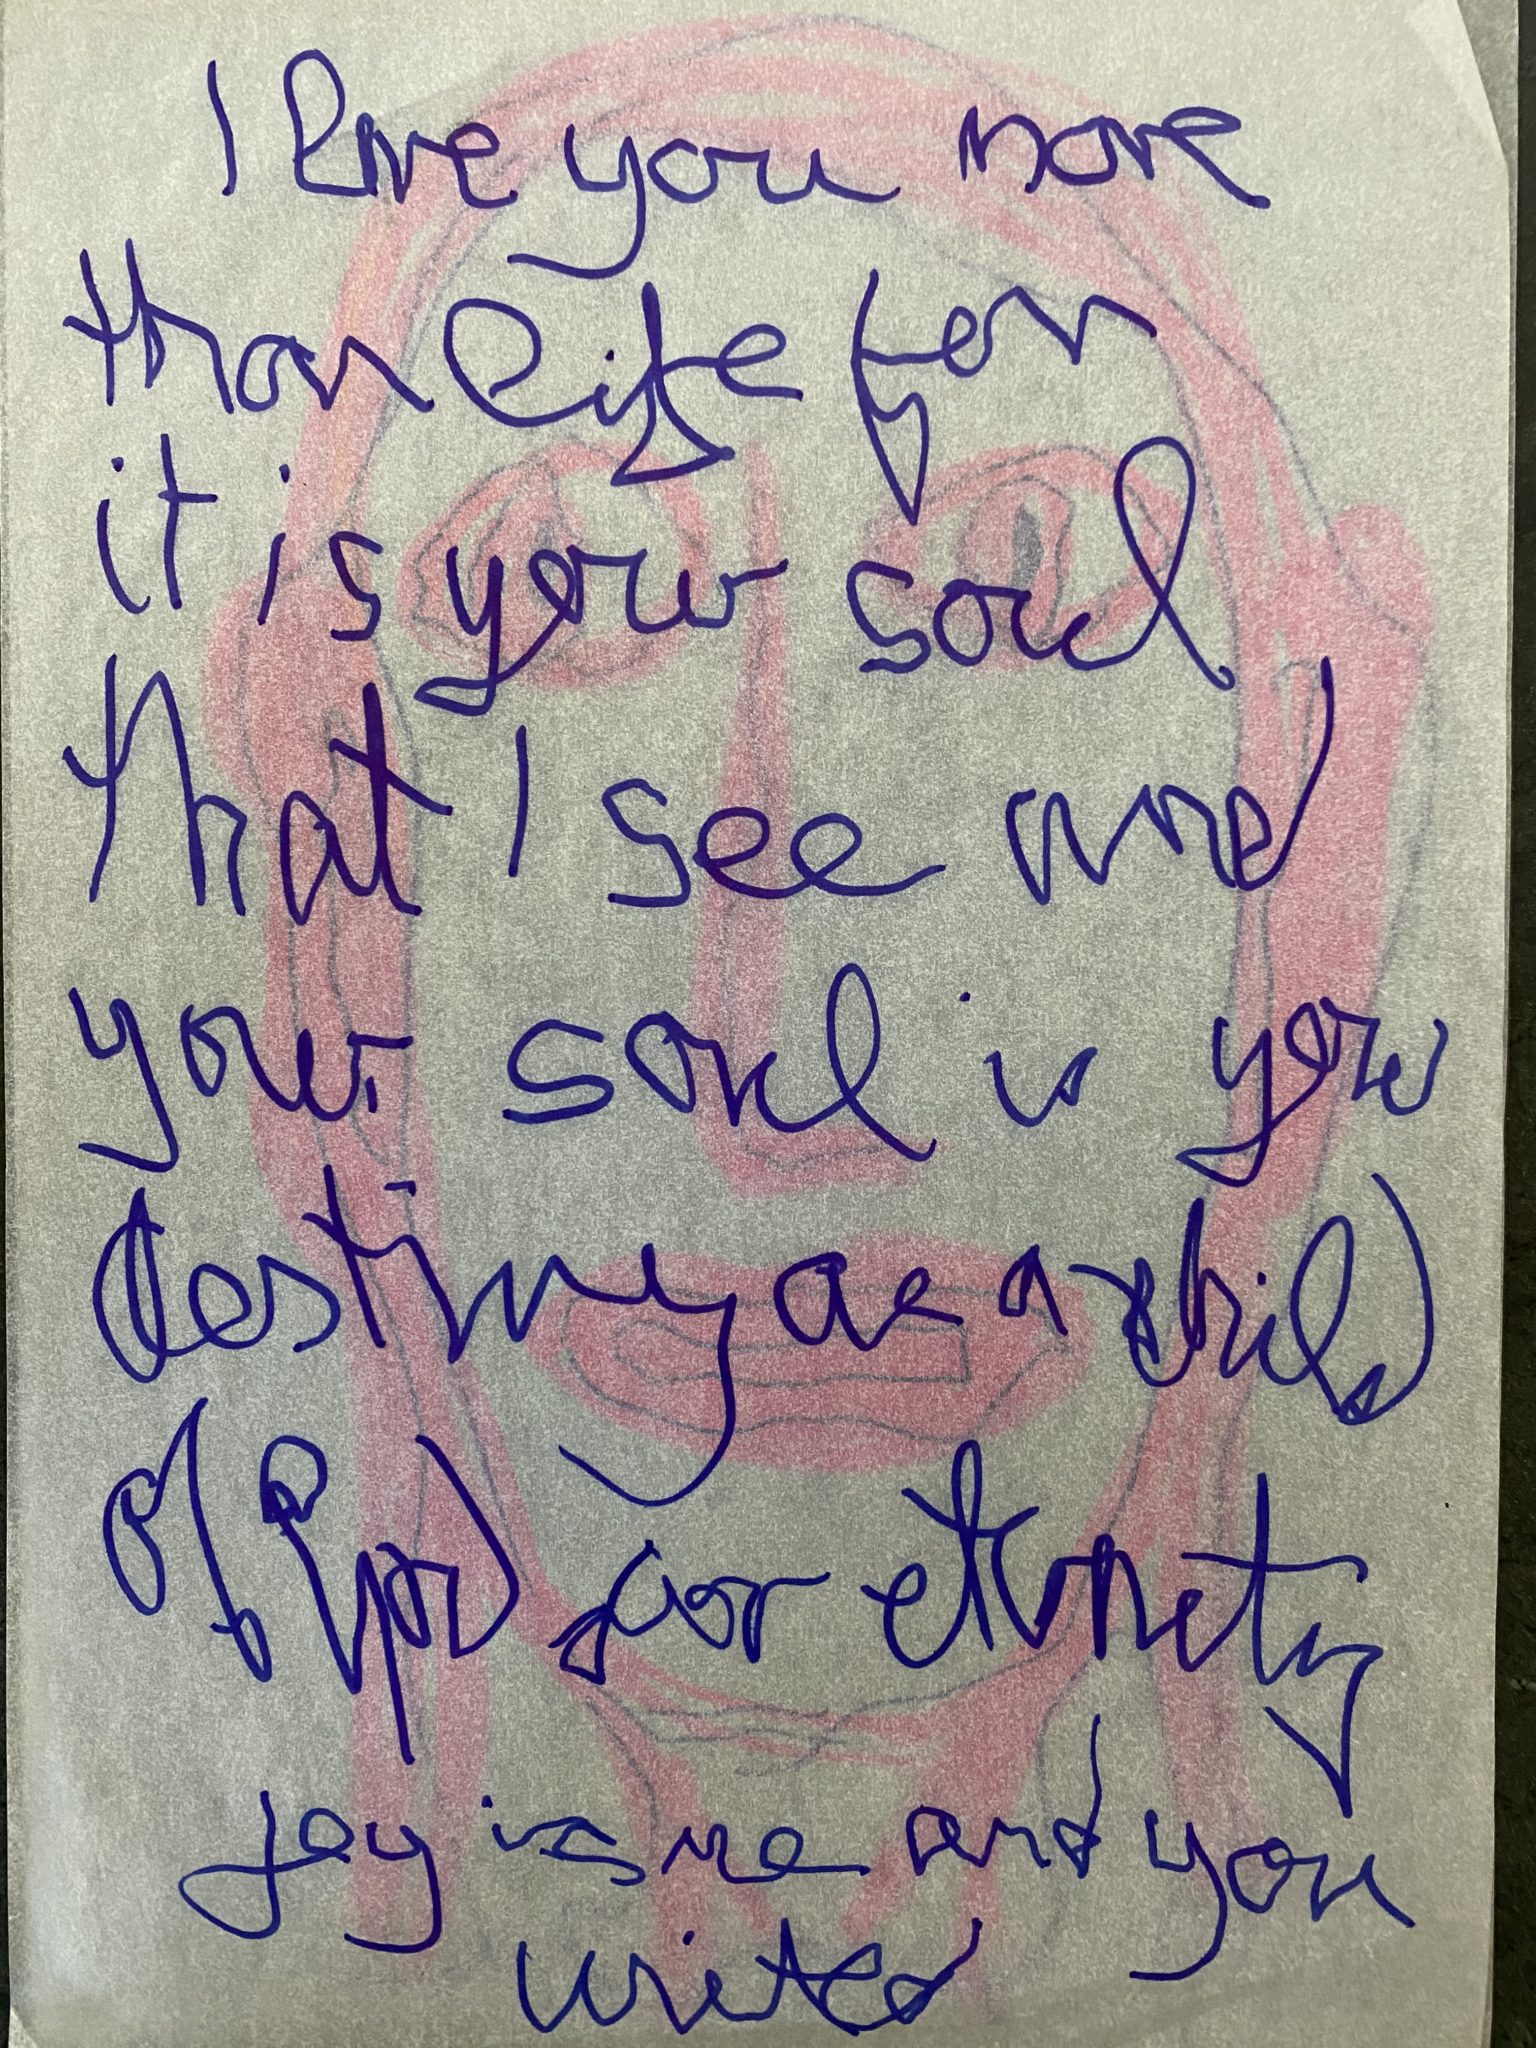 I love you more
than life for
it is your soul
that I see and
your soul is your
destiny as a child
Of God for eternity
joy is me and you
united